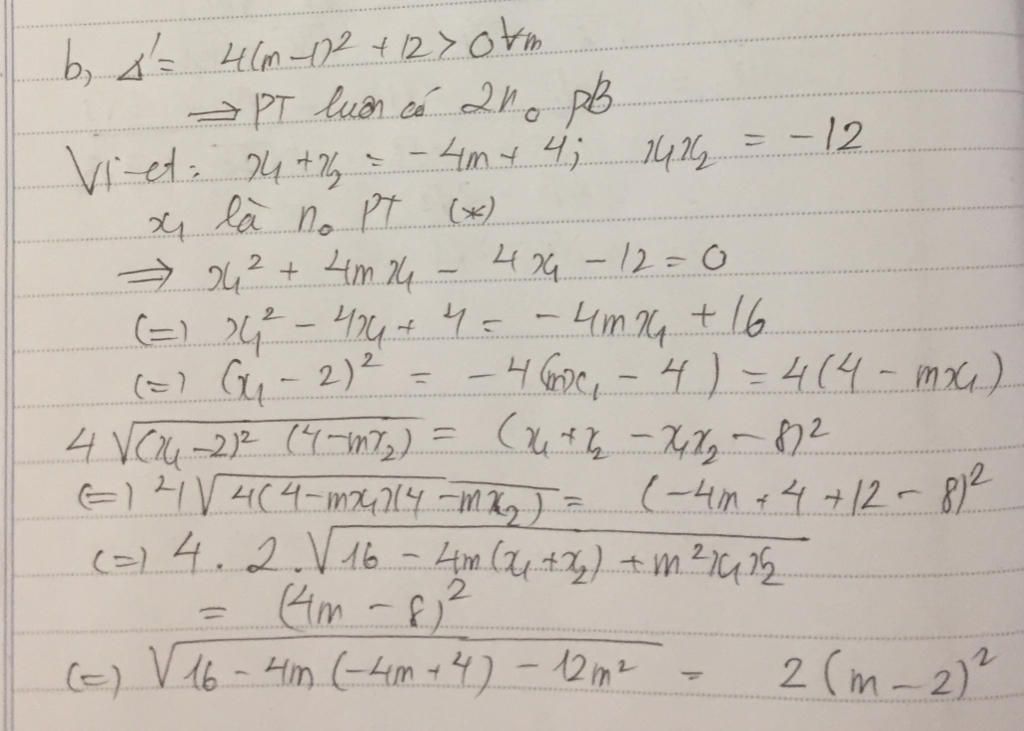 b, Δ' = 4(m-1)² + 12 > 0 ∀m
⇒ PT luôn có 2 n₀ pB
Vi-et: x₁ + x₂ = -4m + 4; x₁x₂ = -12
x₁ là n₀ PT (*)
⇒ x₁² + 4mx₁ - 4x₁ - 12 = 0
(=) x₁² - 4x₁ + 4 = -4mx₁ + 16
(=) (x₁ - 2)² = -4(mx₁ - 4) = 4(4 - mx₁)
4√((x₁-2)² (4-mx₂)) = (x₁ + x₂ - x₁x₂ - 8)²
(=) 4√(4(4-mx₁)(4-mx₂)) = (-4m + 4 + 12 - 8)²
(=) 4 . 2 . √(16 - 4m(x₁ + x₂) + m²x₁x₂)
= (4m - 8)²
(=) √(16 - 4m(-4m+4) - 12m²) = 2(m-2)²